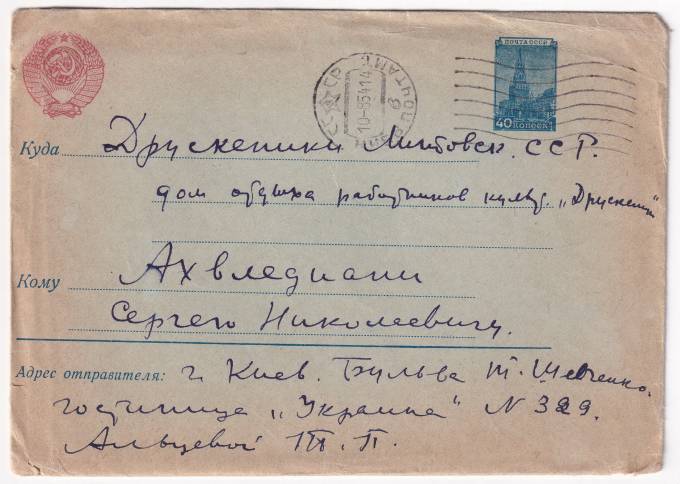 ПОЧТА СССР
40 КОПЕЕК
ПОЧТАМТ
Куда Друскеники Литовск. ССР.
дом отдыха работников культ. „Друскеники"
Кому Ахвледиани
Сергею Николаевичу.
Адрес отправителя: г. Киев. Бульва Т. Шевченко.
гостиница „Украина" N 329.
Альцевой Т. П.